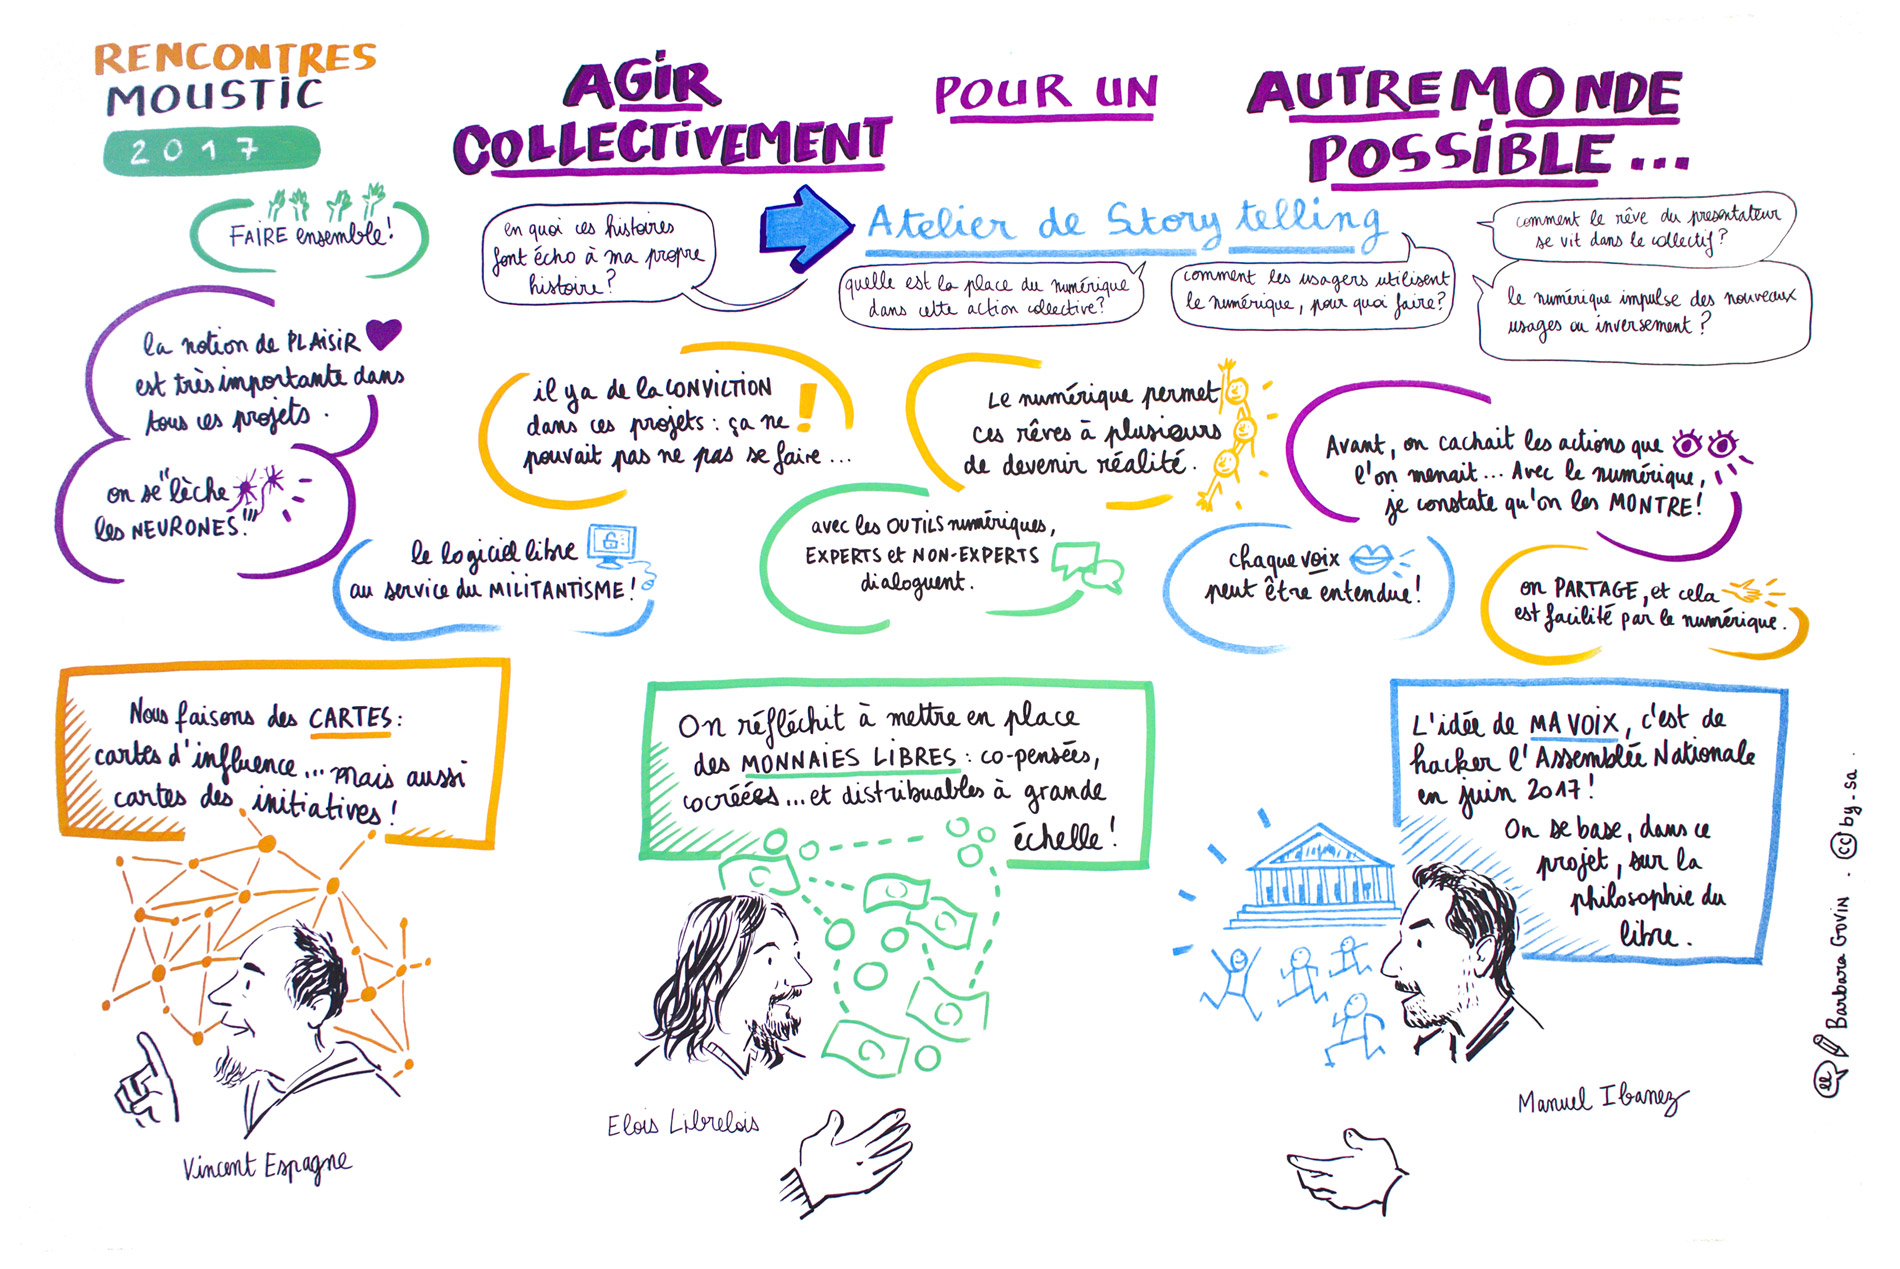 RENCONTRES
MOUSTIC
2017
AGIR
COLLECTIVEMENT
POUR UN
AUTRE MONDE
POSSIBLE...
FAIRE ensemble!
en quoi ces histoires
font écho à ma propre
histoire?
Atelier de Story telling
quelle est la place du numérique
dans cette action collective?
comment les usagers utilisent
le numérique, pour quoi faire?
comment le rêve du presentateur
se vit dans le collectif?
le numérique impulse des nouveaux
usages ou inversement?
la notion de PLAISIR
est très importante dans
tous ces projets.
on se "lèche
les NEURONES!"
il y a de la CONVICTION
dans ces projets: ça ne
pouvait pas ne pas se faire...
Le numérique permet
ces rêves à plusieurs
de devenir réalité.
Avant, on cachait les actions que
l'on menait... Avec le numérique,
je constate qu'on les MONTRE!
le logiciel libre
au service du MILITANTISME!
avec les OUTILS numériques,
EXPERTS et NON-EXPERTS
dialoguent.
chaque voix
peut être entendue!
on PARTAGE, et cela
est facilité par le numérique.
Nous faisons des CARTES:
cartes d'influence... mais aussi
cartes des initiatives!
On réfléchit à mettre en place
des MONNAIES LIBRES: co-pensées,
cocréées... et distribuables à grande
échelle!
L'idée de MA VOIX, c'est de
hacker l'Assemblée Nationale
en juin 2017!
On se base, dans ce
projet, sur la
philosophie du
libre.
Vincent Espagne
Elois Librelois
Manuel Ibanez
Barbara GOVIN. cc by-sa.